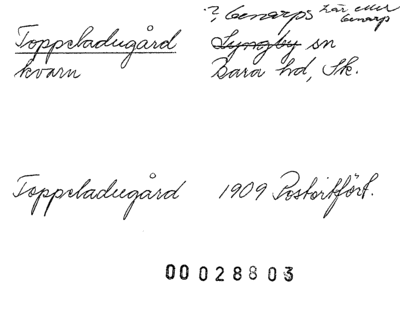 ?, Genarps här eller Genarp
Toppeladugård Lyngby sn
kvarn Bara hd, Sk.
Toppeladugård 1909 Postortfört.
00028803